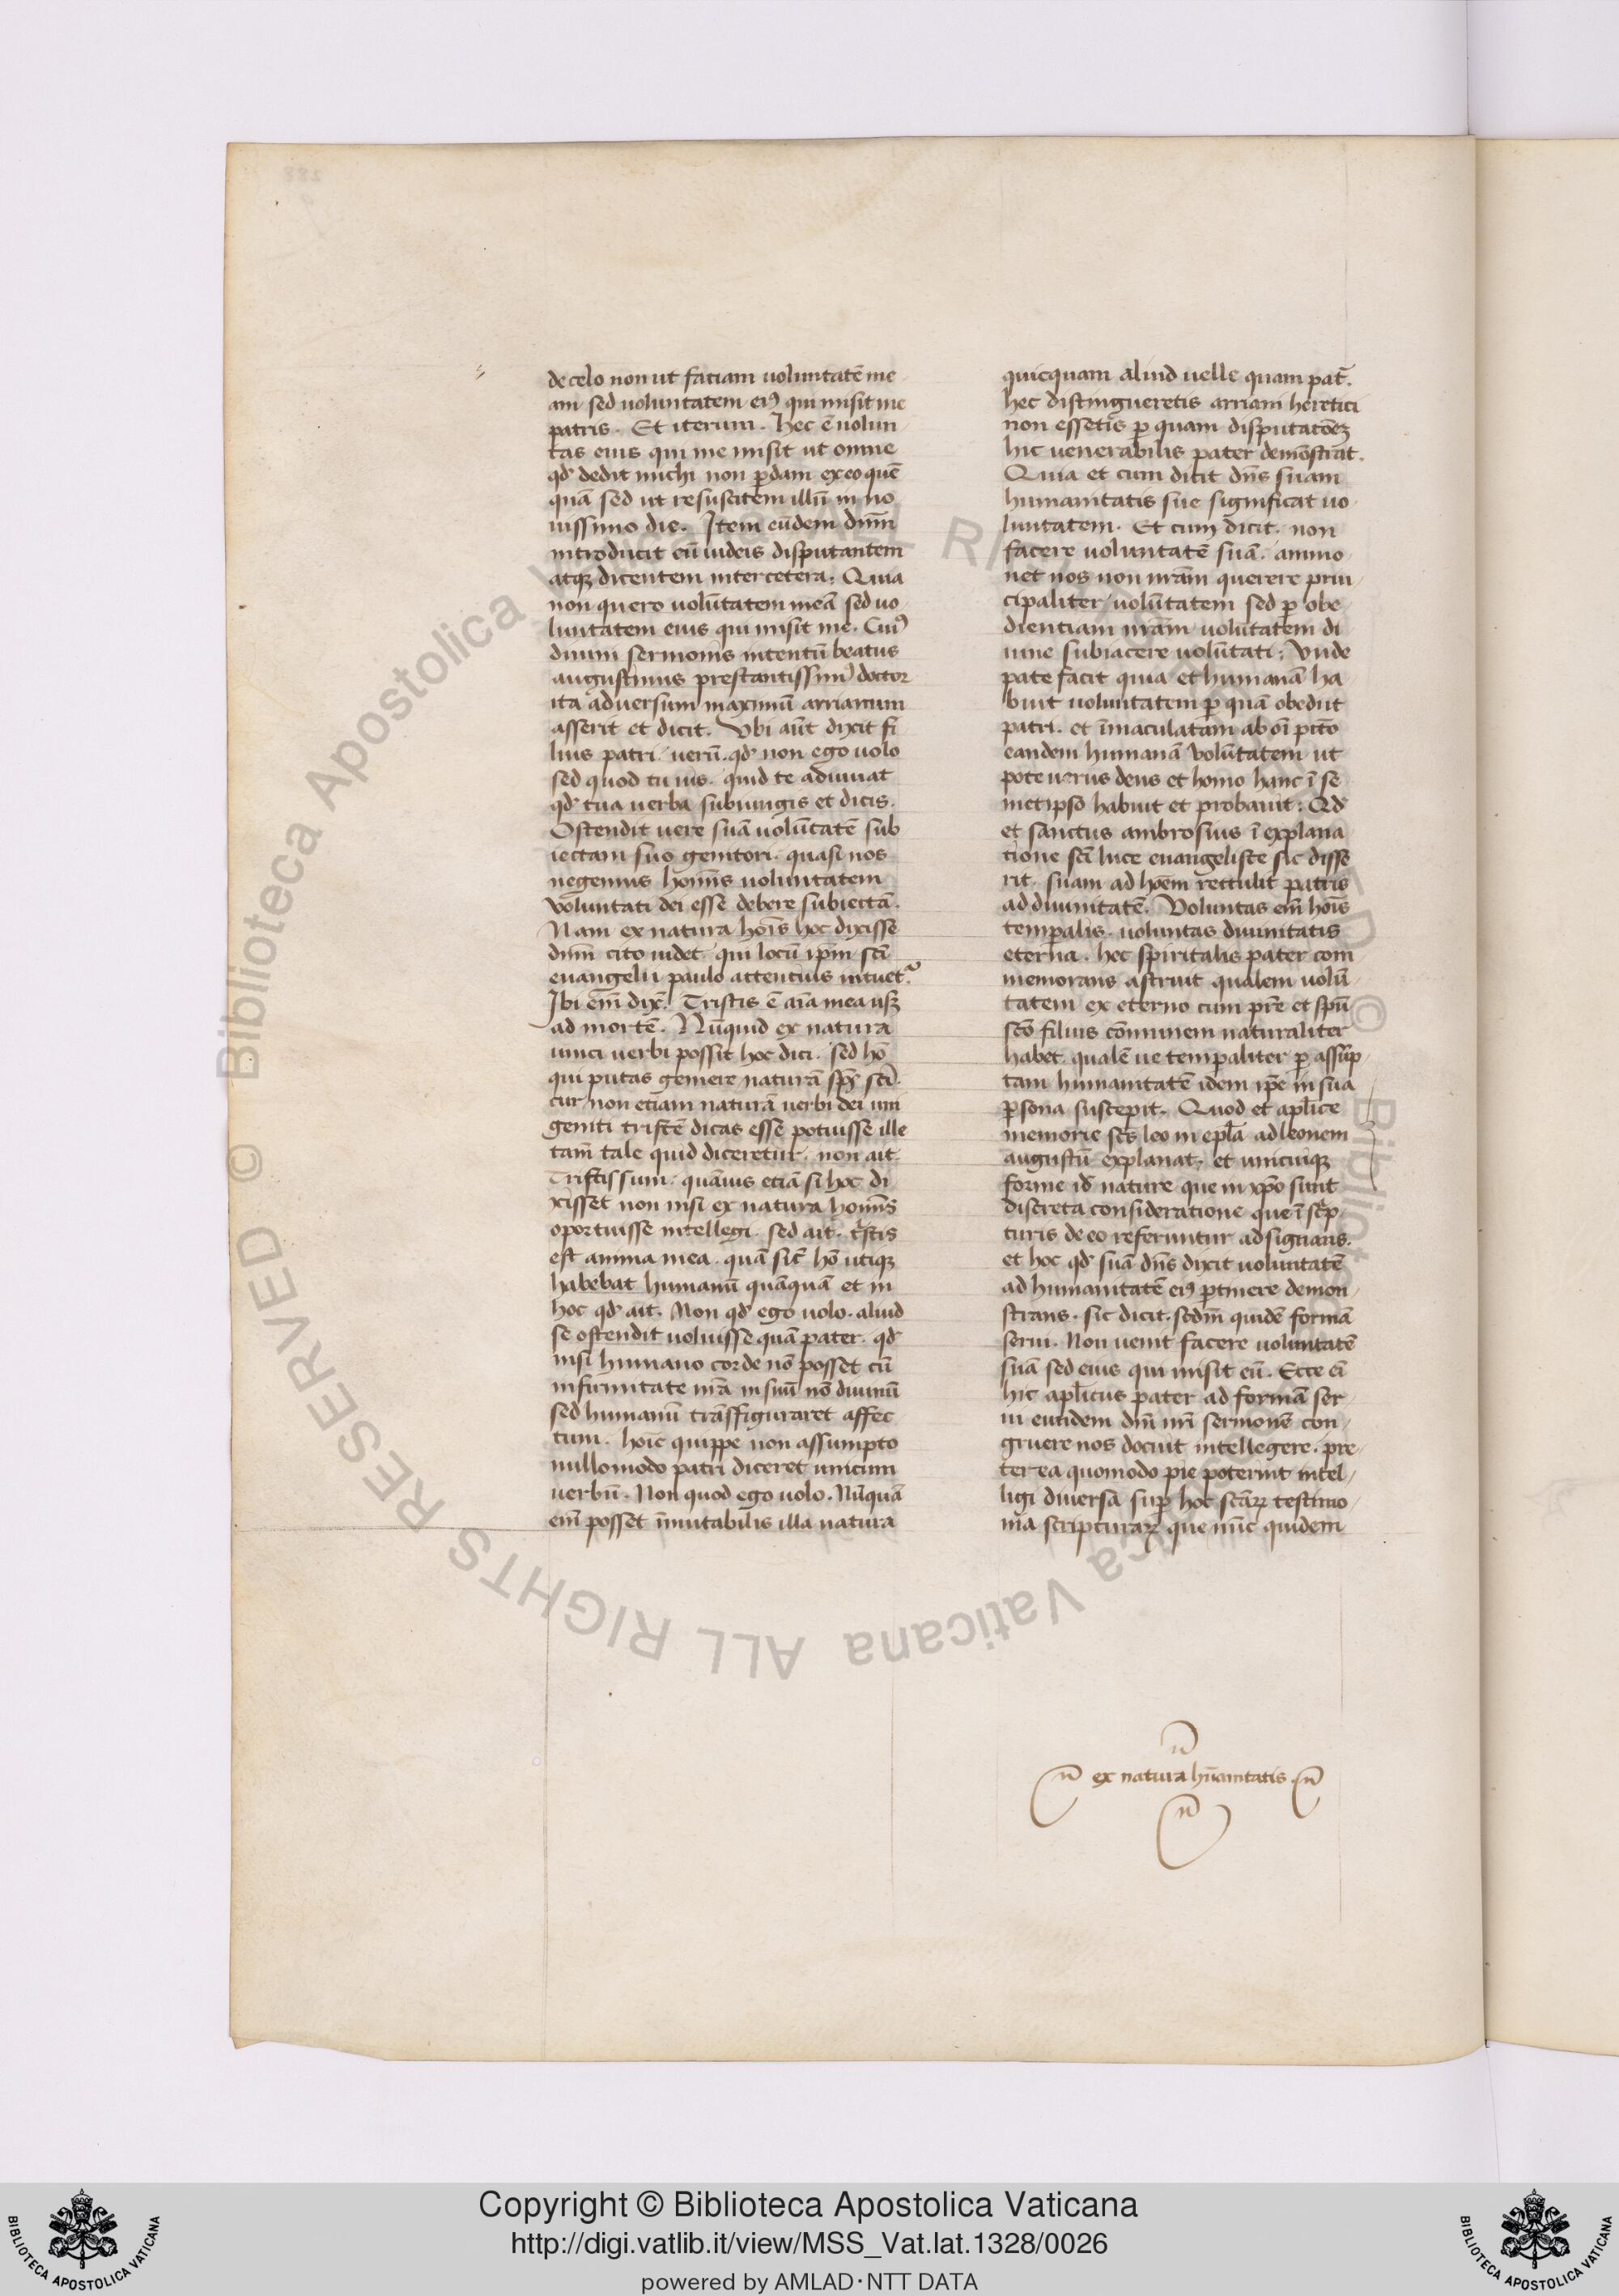 de celo non ut faciam uoluntatē me
am sed uoluntatem eiꝰ qui misit me
patris. Et iterum. Hec ē uolun
tas eius qui me misit ut omne
qd' dedit michi non ꝑdam ex eo quē
quā sed ut resuscitem illū in no
uissimo die. Item eūdem dnm̄
introducit cū iudeis disputantem
atqꝫ dicentem inter cetera; Quia
non quero uolūtatem meā sed uo
luntatem eius qui misit me. Cuiꝰ
diuini sermonis intentū beatus
augustinus prestantissimꝰ doctor
ita aduersum maximū arrianum
asserit et dicit. Vbi aūt dixit fi
lius patri. uerū. qd' non ego uolo
sed quod tu uis. quid te adiuuat
qd' tua uerba subiungis et dicis.
Ostendit uere suā uolūtatē sub
iectam suo genitori. quasi nos
negemus homīs uoluntatem
voluntati dei esse debere subiectā.
Nam ex natura hoīs hoc dixisse
dnm̄ cito uidet qui locū ip̄m sc̄i
euangelii paulo attentius intuet᷑.
Ibi em̄ dix̄. Tristis ē aīa mea usqꝫ
ad mortē. Nūquid ex natura
unici uerbi possit hoc dici. sed hō
qui putas gemere naturā sp̄s sc̄i.
cur non etiam naturā uerbi dei uni
geniti tristē dicas esse potuisse ille
tam̄ tale quid diceretur. non ait.
Tristis sum. quāuis etiā si hoc di
xisset non nisi ex natura homīs
oportuisse intellegi. sed ait. tͥstis
est anima mea. quā sic̄ hō utiqꝫ
habebat humanū quāquā et in
hoc qd' ait. Non qd' ego uolo. aliud
se ostendit uoluisse quā pater. qd'
nisi humano corde nō posset cū
infirmitate nr̄a in suū nō diuinū
sed humanū trāsfiguraret affec
tum. hoīe quippe non assumpto
nullomodo patri diceret unicum
uerbū. Non quod ego uolo. Nūquā
em̄ posset īmutabilis illa natura
quicquam aliud uelle quam pat̄.
hec distingueretis arriani heretici
non essetis ꝑ quam disputatōeꝫ
hic uenerabilis pater demōstrat.
Quia et cum dicit dn̄s suam
humanitatis sue significat uo
luntatem. Et cum dicit. non
facere uoluntatē suā. ammo
net nos non nr̄am querere prin
cipaliter uolūtatem sed ꝑ obe
dientiam nr̄am uolūtatem di
uine subiacere uolūtati; Vnde
pate facit quia et humanā ha
buit uoluntatem ꝑ quā obediit
patri. et īmaculatam ab oī pctō
eandem humanā uolūtatem ut
pote uerus deus et homo hanc ī se
metipso habuit et probauit; Qd'
et sanctus ambrosius ī explana
tione sc̄i luce euangeliste sic disse
rit. suam ad hoēm rettulit patris
ad diuinitatē. Voluntas em̄ hoīs
temporalis. uoluntas diuinitatis
eterna. hec spiritalis pater com
memorans astruit qualem uolū
tatem ex eterno cum pr̄e et spū
sc̄o filius cōmunem naturaliter
habet. qualē ue temporaliter ꝑ assūp
tam humanitatē idem ip̄e in sua
ꝑsona suscepit. Quod et apl̄ice
memorie sc̄s leo in epl̄a ad leonem
augustū explanat. et unicuiqꝫ
forme id' nature que in xp̄o sunt
discreta consideratione que ī sc͛p
turis de eo referuntur adsignans.
et hoc qd' suā dn̄s dixit uoluntatē
ad humanitatē eiꝰ ꝑtinere demon
strans. sic dicit. scdm̄ quidē formā
serui. Non uenit facere uoluntatē
suā sed eius qui misit eū. Ecce eī
hic apl̄icus pater ad formā ser
ui eundem dnī nrī sermonē con
gruere nos docuit intellegere. pre
terea quomodo pie poterint intel
ligi diuersa suꝑ hoc sc̄aꝝ testimo
nia scripturaꝝ que nūc quidem
ex natura hūanitatis.
Copyright © Biblioteca Apostolica Vaticana
http://digi.vatlib.it/view/MSS_Vat.lat.1328/0026
powered by AMLAD·NTT DATA
BIBLIOTECA APOSTOLICA VATICANA
BIBLIOTECA APOSTOLICA VATICANA
© Biblioteca Apostolica Vaticana ALL RIGHTS RESERVED